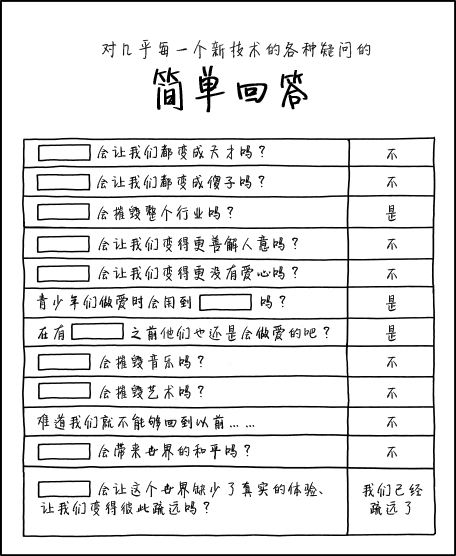 对几乎每一个新技术的各种疑问的
简单回答
会让我们都变成天才吗？ 不
会让我们都变成傻子吗？ 不
会摧毁整个行业吗？ 是
会让我们变得更善解人意吗？ 不
会让我们变得更没有爱心吗？ 不
青少年们做爱时会用到 吗？ 是
在有 之前他们也还是会做爱的吧？ 是
会摧毁音乐吗？ 不
会摧毁艺术吗？ 不
难道我们就不能够回到以前…… 不
会带来世界的和平吗？ 不
会让这个世界缺少了真实的体验、
让我们变得彼此疏远吗？
我们已经
疏远了